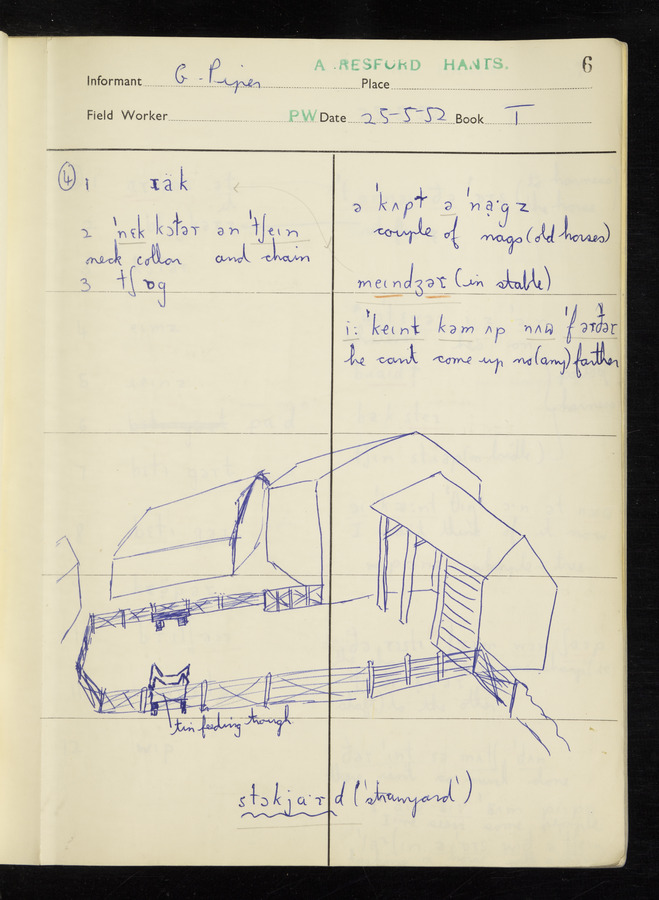 A .RESFORD HANTS. 6
Informant G. Piper Place
Field Worker PW Date 25-5-52 Book I
④ 1 ɹäk
2 ˈnɛk kɔtər ən ˈtʃeın
neck collar and chain
3 tʃɒg
ə ˈkʌpɫ ə ˈnạ·gz
couple of nags (old horses)
meındʒər (in stable)
i: ˈkeınt kəm ʌp nʌɷ ˈfərðər
he cant come up no (any) farther
tin feeding trough
stɔkja·rd ('strawyard')